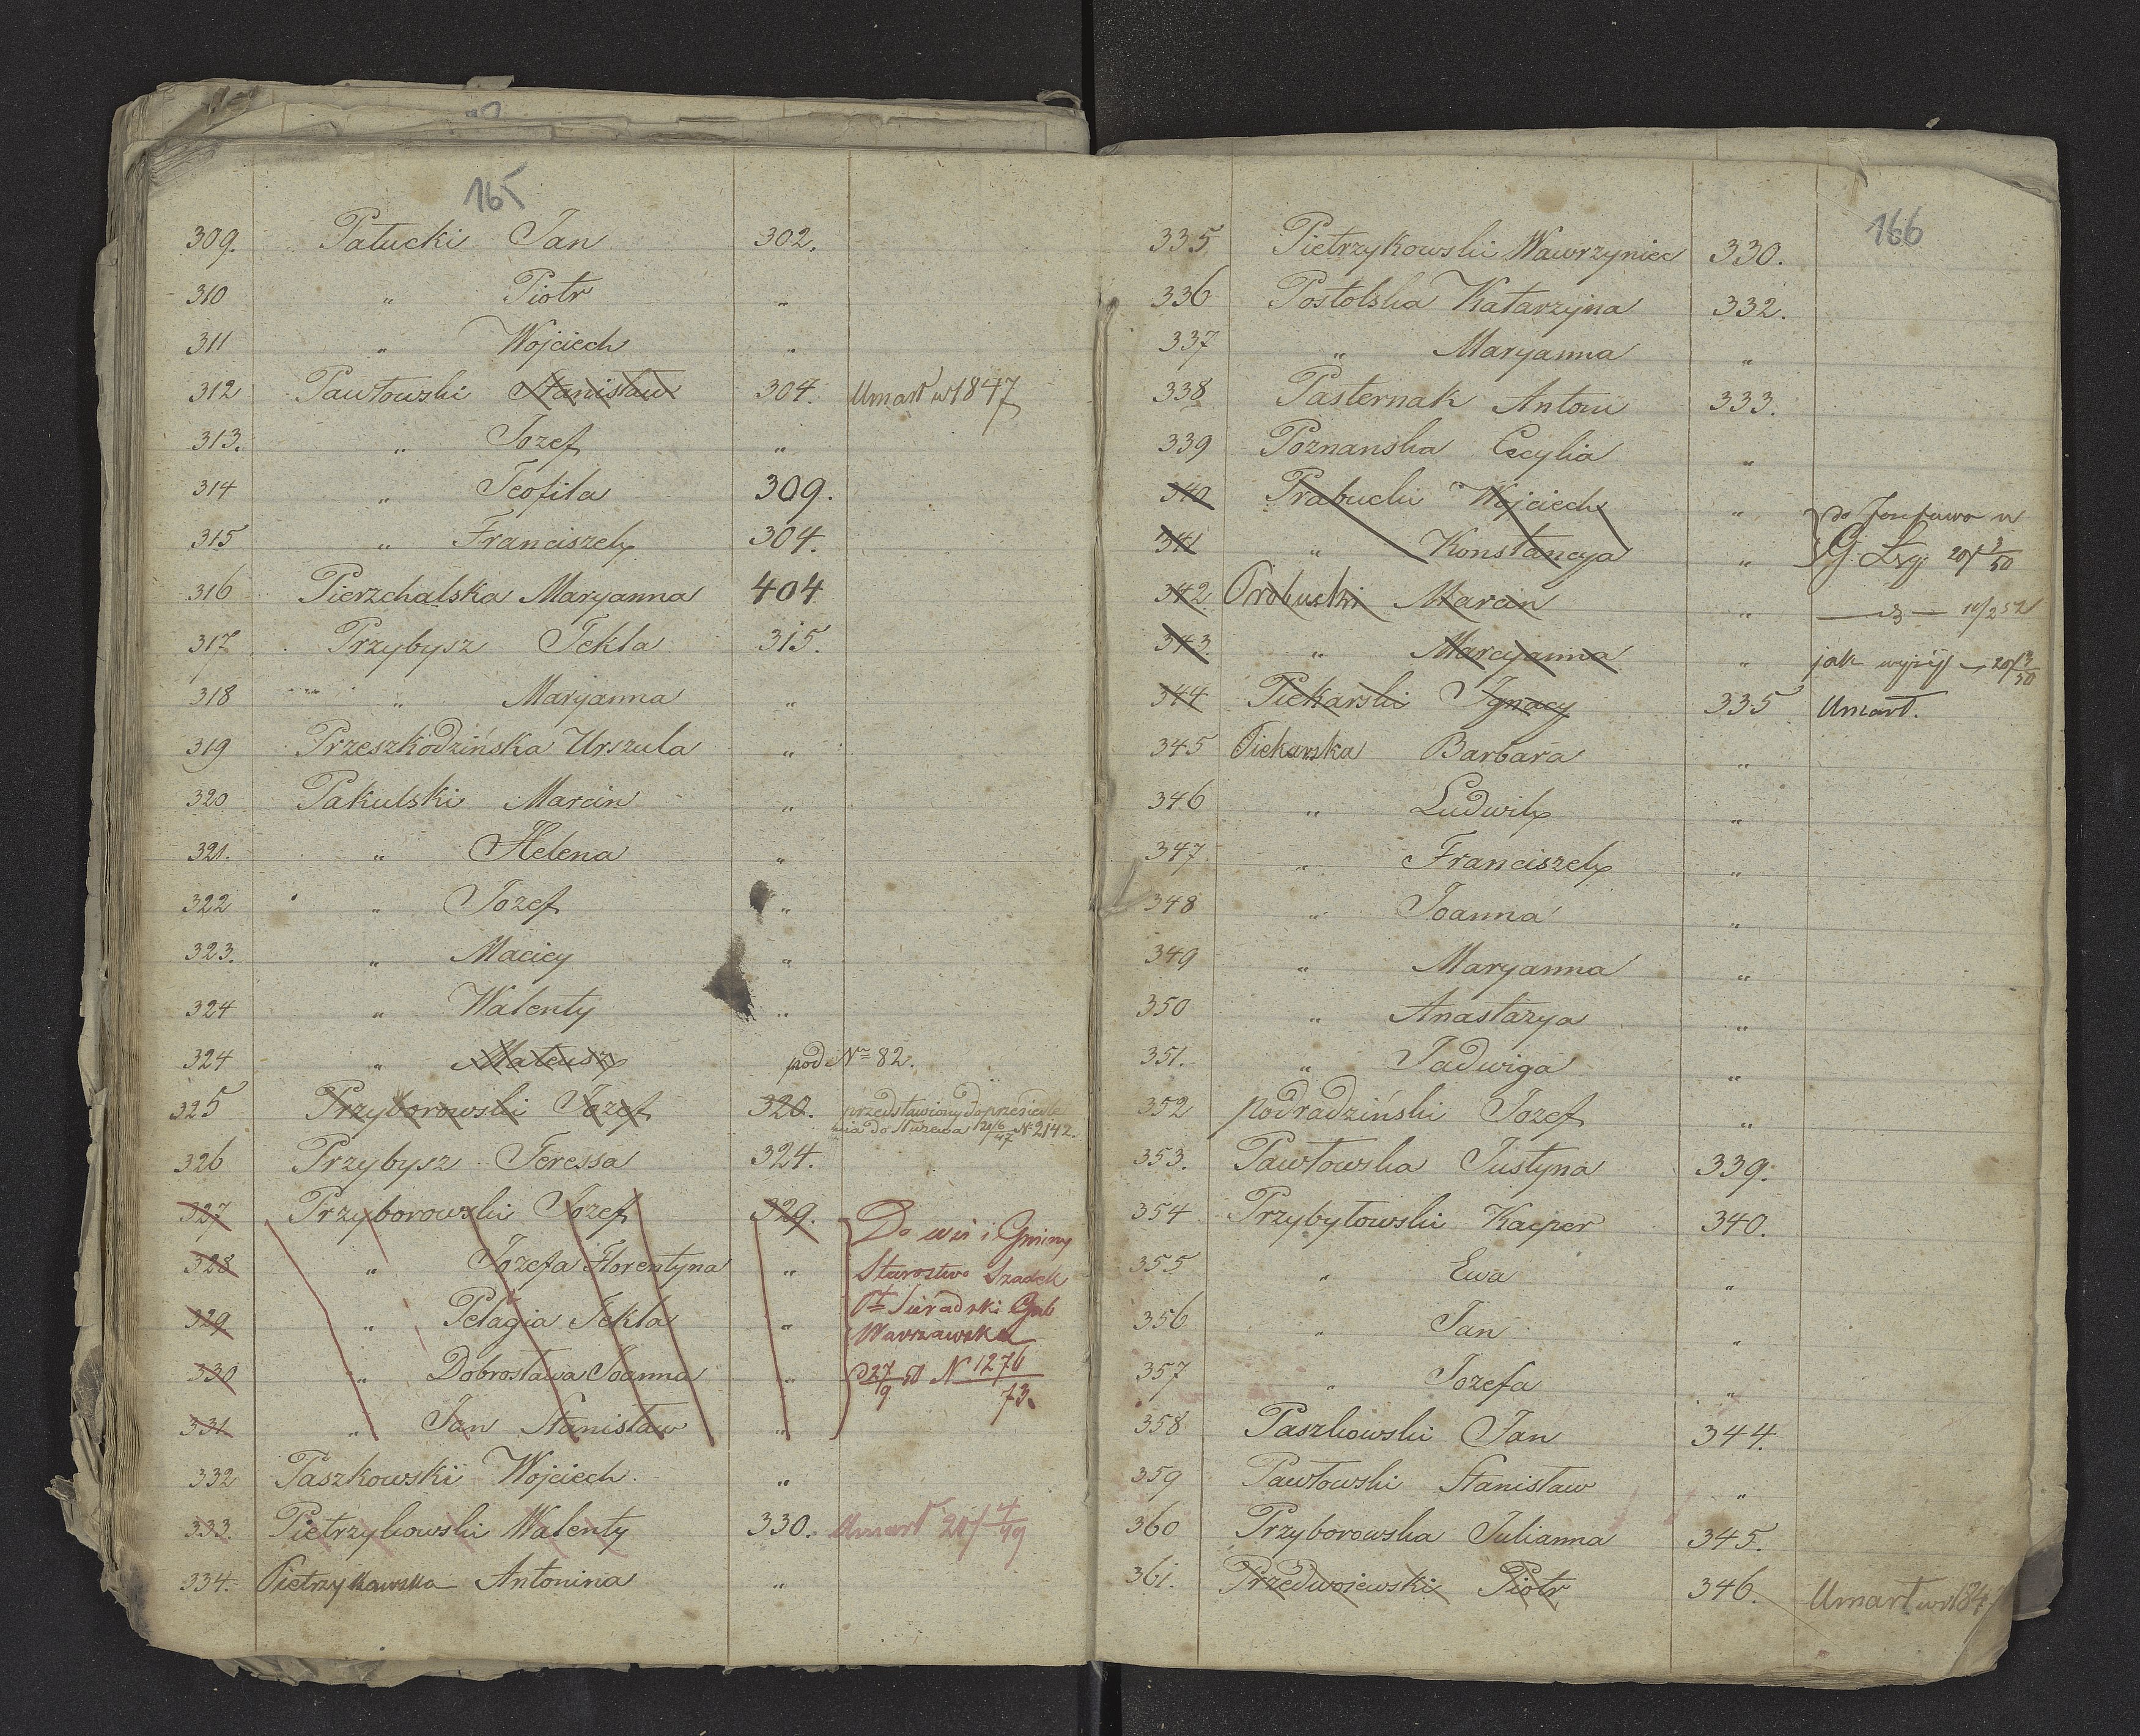 165
309. Patucki Jan 302.
310 " Piotr "
311 " Wojciech "
312 Pawłowski Stanisław 304. Umarł w 1847
313. " Jozef "
314 " Teofila 309.
315 " Franciszek 304.
316 Pierzchalska Maryanna 404
317 Przybysz Tekla 315.
318 " Maryanna "
319 Przeszkodzińska Urszula "
320 Pakulski Marcin "
321. " Helena "
322 " Jozef "
323. " Maciey "
324 " Walenty "
324 " Mateusz pod No 82.
325 Przyborowski Jozef 320. przedstawiony do przesiedle
nia do 20/6 47 N 2142.
326 Przybysz Teressa 324.
327 Przyborowski Jozef 329. Do wsi i Gminy
328 " Jozefa Florentyna " Starostwo Szadek
329 " Pelagia Tekla " Pt Sieradzki Gub
Warszawska
330 " Dobrosława Joanna " d 27/9 50 N 1276/73.
331 " Jan Stanisław "
332 Paszkowski Wojciech "
333. Pietrzykowski Walenty 330. Umarł 20/4 49
334. Pietrzykowska Antonina "
166
335 Pietrzykowski Wawrzyniec 330.
336 Postolska Katarzyna 332.
337 " Maryanna "
338 Pasternak Antoni 333.
339 Poznanska Cecylia "
340 Prabucki Wojciech " do w
341 " Konstancya " G. 20/3 50
342 Prabucki Marcin "
343. " Marcyanna " jak wyżij 20/3 50
344 Piekarski Ignacy 335 Umarł.
345 Piekarska Barbara "
346 " Ludwik "
347 " Franciszek "
348 " Joanna "
349 " Maryanna "
350 " Anastazya "
351. " Jadwiga "
352 Podradziński Jozef "
353. Pawłowska Justyna 339.
354 Przybyłowski Kacper 340.
355 " Ewa "
356 " Jan "
357 " Jozefa "
358 Paszkowski Jan 344.
359 Pawłowski Stanisław "
360 Przyborowska Julianna 345.
361. Przedwojewski Piotr 346. Umarł w 1847